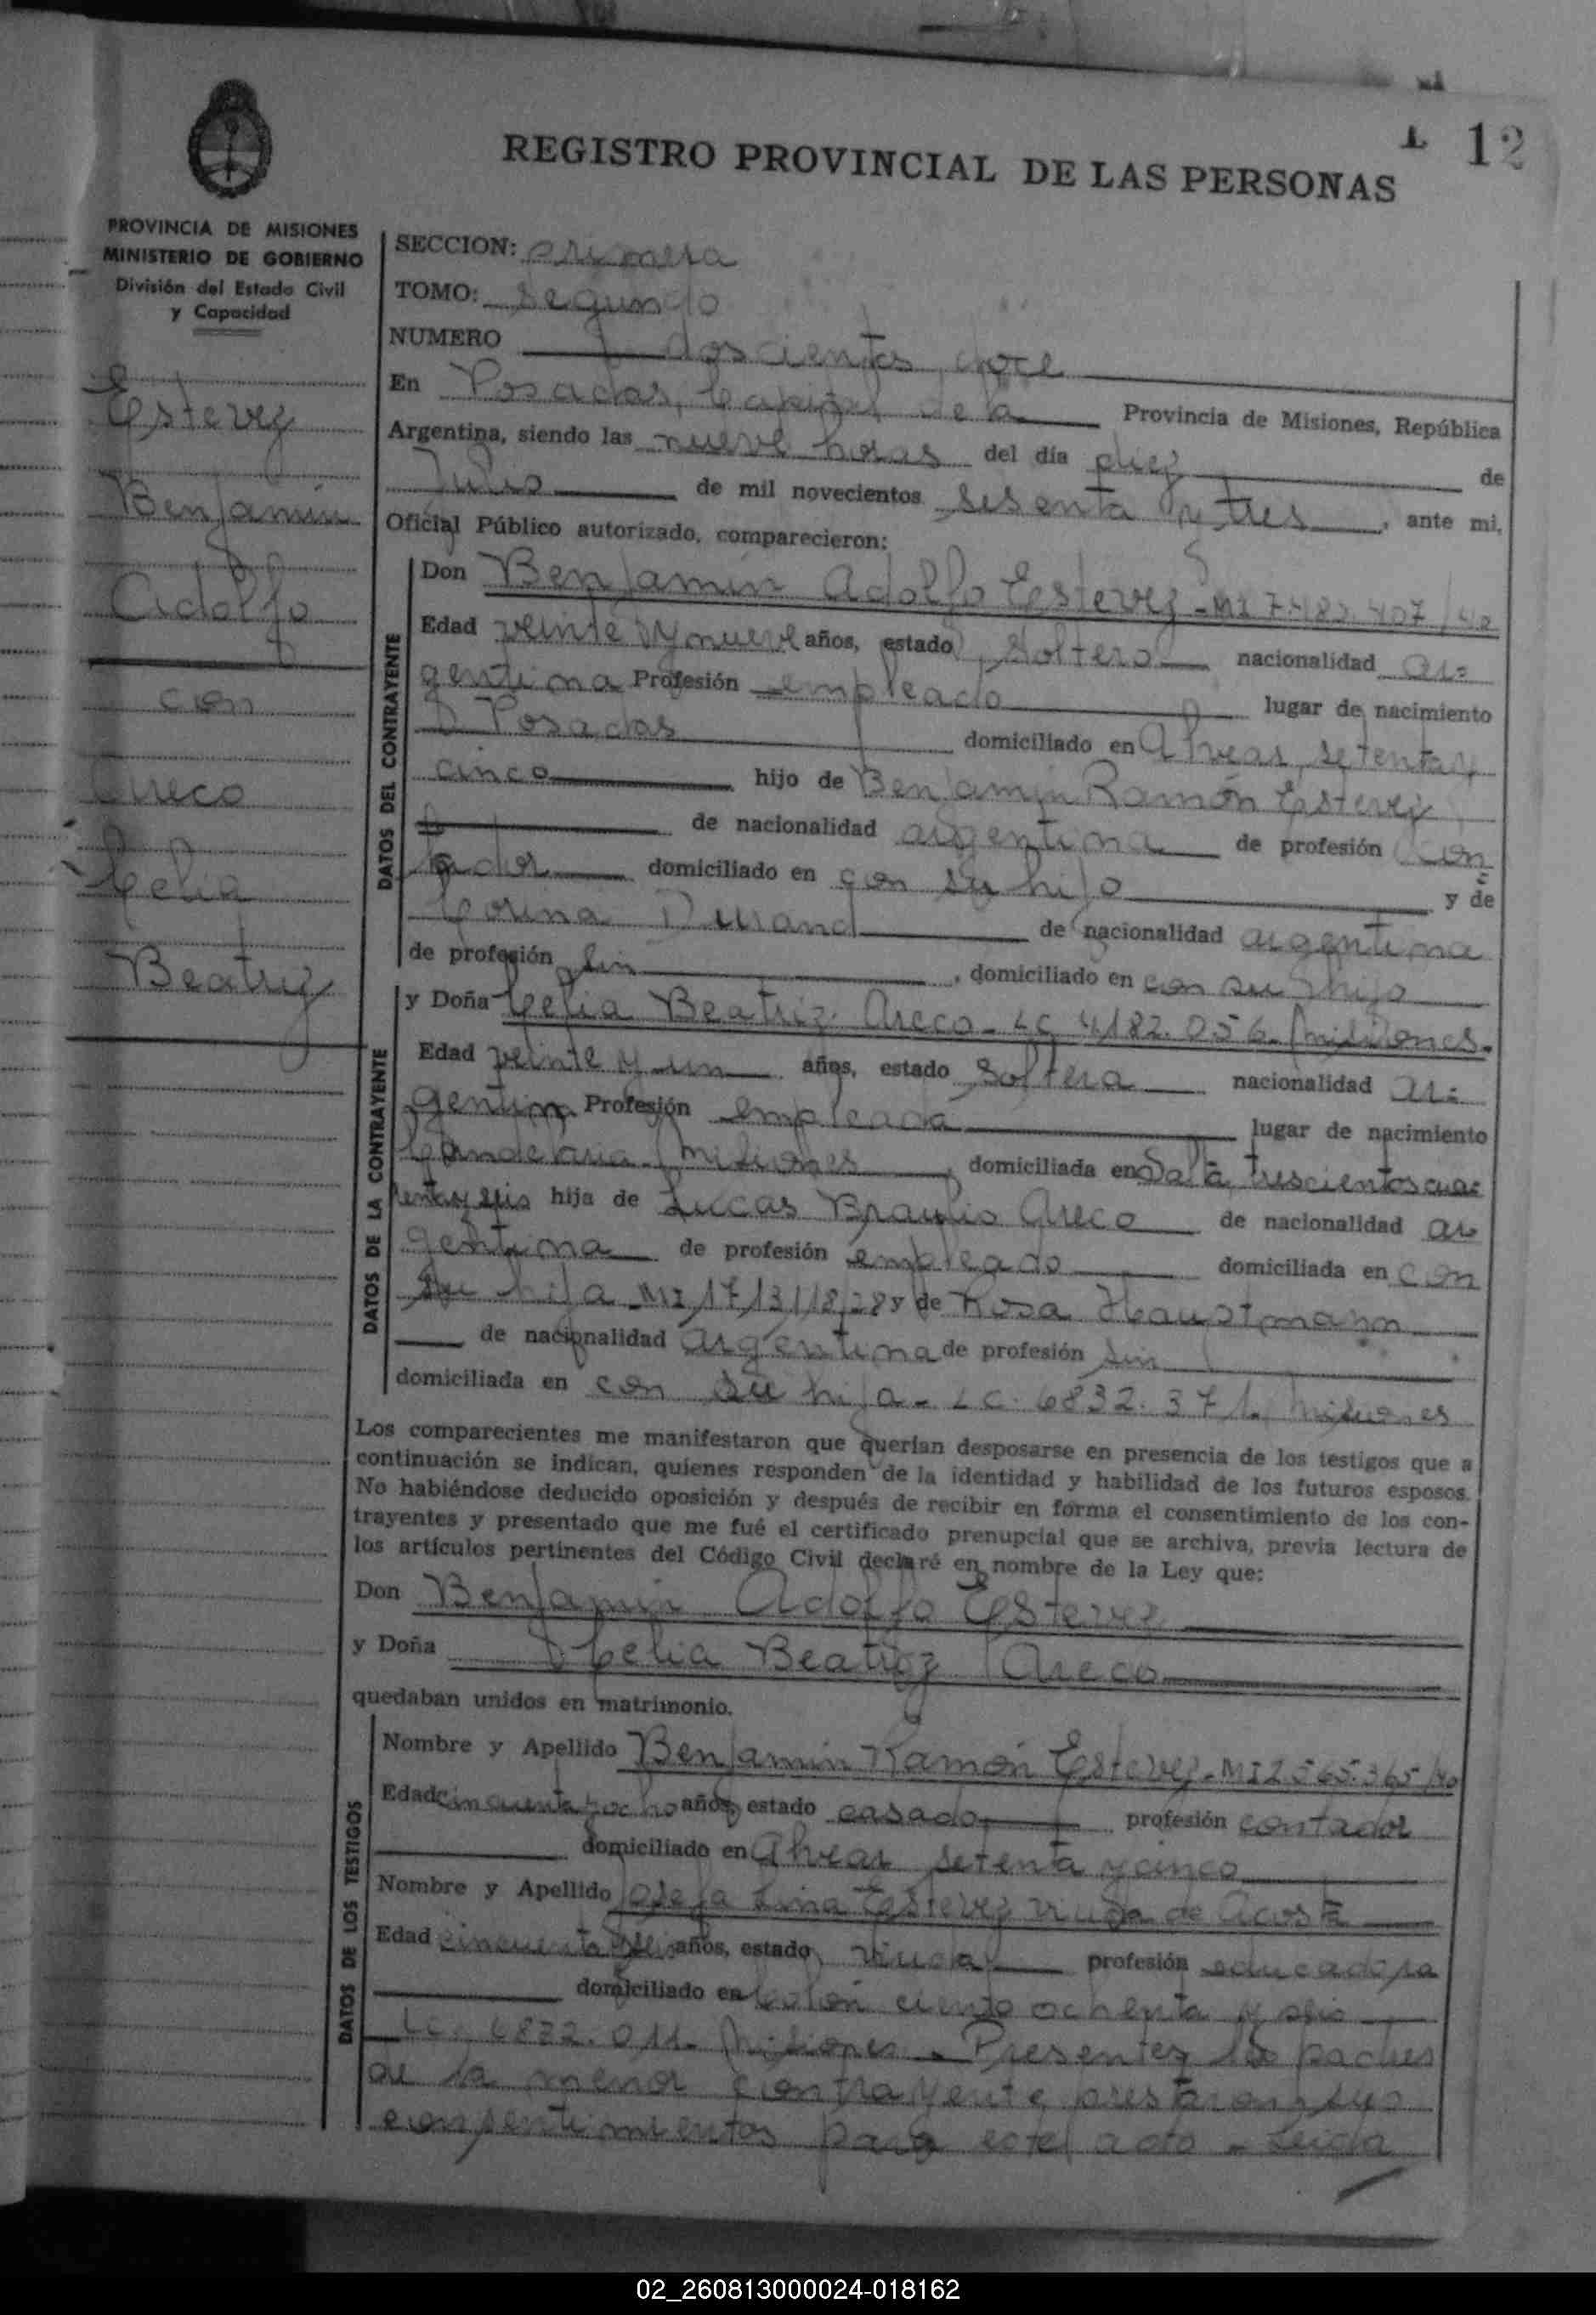 12
REGISTRO PROVINCIAL DE LAS PERSONAS
PROVINCIA DE MISIONES
MINISTERIO DE GOBIERNO
División del Estado Civil
y Capacidad
Estevez
Benjamin
Adolfo
con
Areco
Celia
Beatriz
SECCION: primera
TOMO: segundo
NUMERO doscientos doce
En Posadas, Capital de la Provincia de Misiones, República
Argentina, siendo las nueve horas del día diez de
Julio de mil novecientos sesenta y tres, ante mi,
Oficial Público autorizado, comparecieron:
DATOS DEL CONTRAYENTE
Don Benjamin Adolfo Estevez - MI 7.482.407/40
Edad veinte y nueve años, estado soltero nacionalidad ar=
gentina Profesión empleado lugar de nacimiento
Posadas domiciliado en Alvear, setenta y
cinco hijo de Benjamin Ramón Estevez
de nacionalidad argentina de profesión con
tador domiciliado en con su hijo y de
Corina Durand de nacionalidad argentina
de profesión sin, domiciliado en con su hijo
DATOS DE LA CONTRAYENTE
y Doña Celia Beatriz Areco - LC 4.182.056. Misiones.
Edad veinte y un años, estado soltera nacionalidad ar=
gentina Profesión empleada lugar de nacimiento
Candelaria Misiones, domiciliada en Salta, trescientos cua=
renta y seis hija de Lucas Braulio Areco de nacionalidad ar
gentina de profesión empleado domiciliada en con
su hija MI y de Rosa
de nacionalidad argentina de profesión sin
domiciliada en con su hija - LC. 6832.371. Misiones
Los comparecientes me manifestaron que querían desposarse en presencia de los testigos que a
continuación se indican, quienes responden de la identidad y habilidad de los futuros esposos.
No habiéndose deducido oposición y después de recibir en forma el consentimiento de los con-
trayentes y presentado que me fué el certificado prenupcial que se archiva, previa lectura de
los artículos pertinentes del Código Civil declaré en nombre de la Ley que:
Don Benjamin Adolfo Estevez
y Doña Celia Beatriz Areco
quedaban unidos en matrimonio.
DATOS DE LOS TESTIGOS
Nombre y Apellido Benjamin Ramón Estevez - MI 2565.365/40
Edad cincuenta y ocho años, estado casado profesión contador
domiciliado en Alvear setenta y cinco
Nombre y Apellido Josefa Lina Estevez viuda de Acosta
Edad cincuenta y seis años, estado viuda profesión educadora
domiciliado en Colón ciento ochenta y seis
LC. 6832.011. Misiones - Presentes los padres
de la menor contrayente prestaron sus
consentimientos para este acto - Leida
02_260813000024-018162